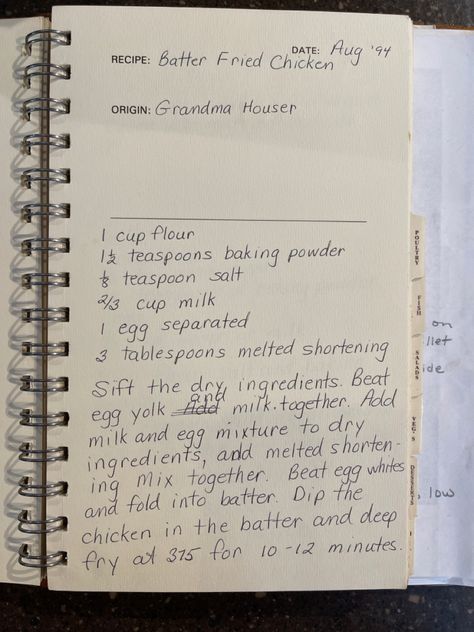 DATE: Aug '94
RECIPE: Batter Fried Chicken
ORIGIN: Grandma Houser
1 cup flour
1½ teaspoons baking powder
⅛ teaspoon salt
2/3 cup milk
1 egg separated
3 tablespoons melted shortening
Sift the dry ingredients. Beat
egg yolk and milk together. Add
milk and egg mixture to dry
ingredients, add melted shorten-
ing Mix together. Beat egg whites
and fold into batter. Dip the
chicken in the batter and deep
fry at 375 for 10-12 minutes.
POULTRY
FISH
SALADS
VEG'S
DESSERTS
on
llet
ide
low